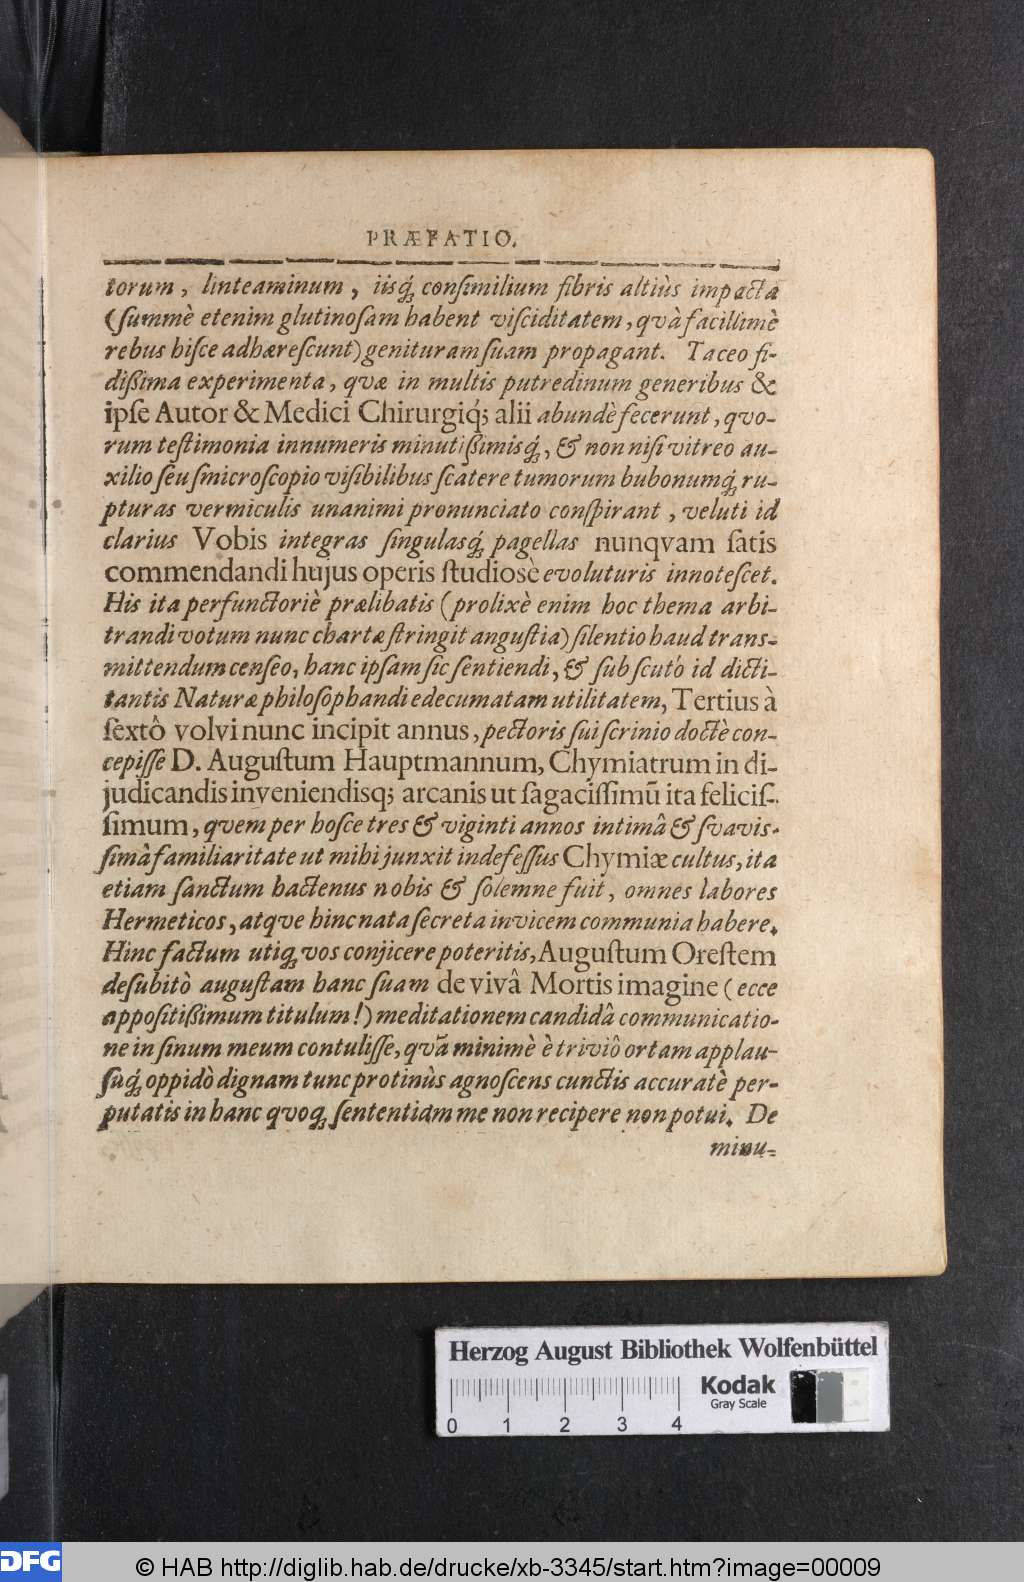 PRÆFATIO.
torum, linteaminum, iisq́; conſimilium fibris altiùs impacta
(ſummè etenim glutinoſam habent viſciditatem, qvà facillimè
rebus hiſce adhæreſcunt) genituram ſuam propagant. Taceo fi-
dißima experimenta, qvæ in multis putredinum generibus &
ipſe Autor & Medici Chirurgiq́; alii abundè fecerunt, qvo-
rum teſtimonia innumeris minutißimisq́;, & non niſi vitreo au-
xilio ſeu ſmicroſcopio viſibilibus ſcatere tumorum bubonumq́; ru-
pturas vermiculis unanimi pronunciato conſpirant, veluti id
clarius Vobis integras ſingulasq́; pagellas nunqvam ſatis
commendandi hujus operis ſtudiosè evoluturis innoteſcet.
His ita perfunctoriè prælibatis (prolixè enim hoc thema arbi-
trandi votum nunc chartæ ſtringit anguſtia) ſilentio haud trans-
mittendum cenſeo, hanc ipſam ſic ſentiendi, & ſub ſcuto id dicti-
tantis Naturæ philoſophandi edecumatam utilitatem, Tertius à
ſextô volvi nunc incipit annus, pectoris ſui ſcrinio doctè con-
cepiſſe D. Auguſtum Hauptmannum, Chymiatrum in di-
judicandis inveniendisq; arcanis ut ſagaciſſimũ ita feliciſ-
ſimum, qvem per hoſce tres & viginti annos intimâ & ſvavis-
ſimâ familiaritate ut mihi junxit indefeſſus Chymiæ cultus, ita
etiam ſanctum hactenus nobis & ſolemne fuit, omnes labores
Hermeticos, atqve hinc nata ſecreta invicem communia habere.
Hinc factum utiq; vos conjicere poteritis, Auguſtum Oreſtem
deſubitò auguſtam hanc ſuam de vivâ Mortis imagine (ecce
appoſitißimum titulum!) meditationem candidâ communicatio-
ne in ſinum meum contuliſſe, qvã minimè è triviô ortam applau-
ſuq́; oppidò dignam tunc protinùs agnoſcens cunctis accuratè per-
putatis in hanc quoq; ſententiam me non recipere non potui. De
minu-
Herzog August Bibliothek Wolfenbüttel
0 1 2 3 4
Kodak
Gray Scale
DFG
© HAB http://diglib.hab.de/drucke/xb-3345/start.htm?image=00009